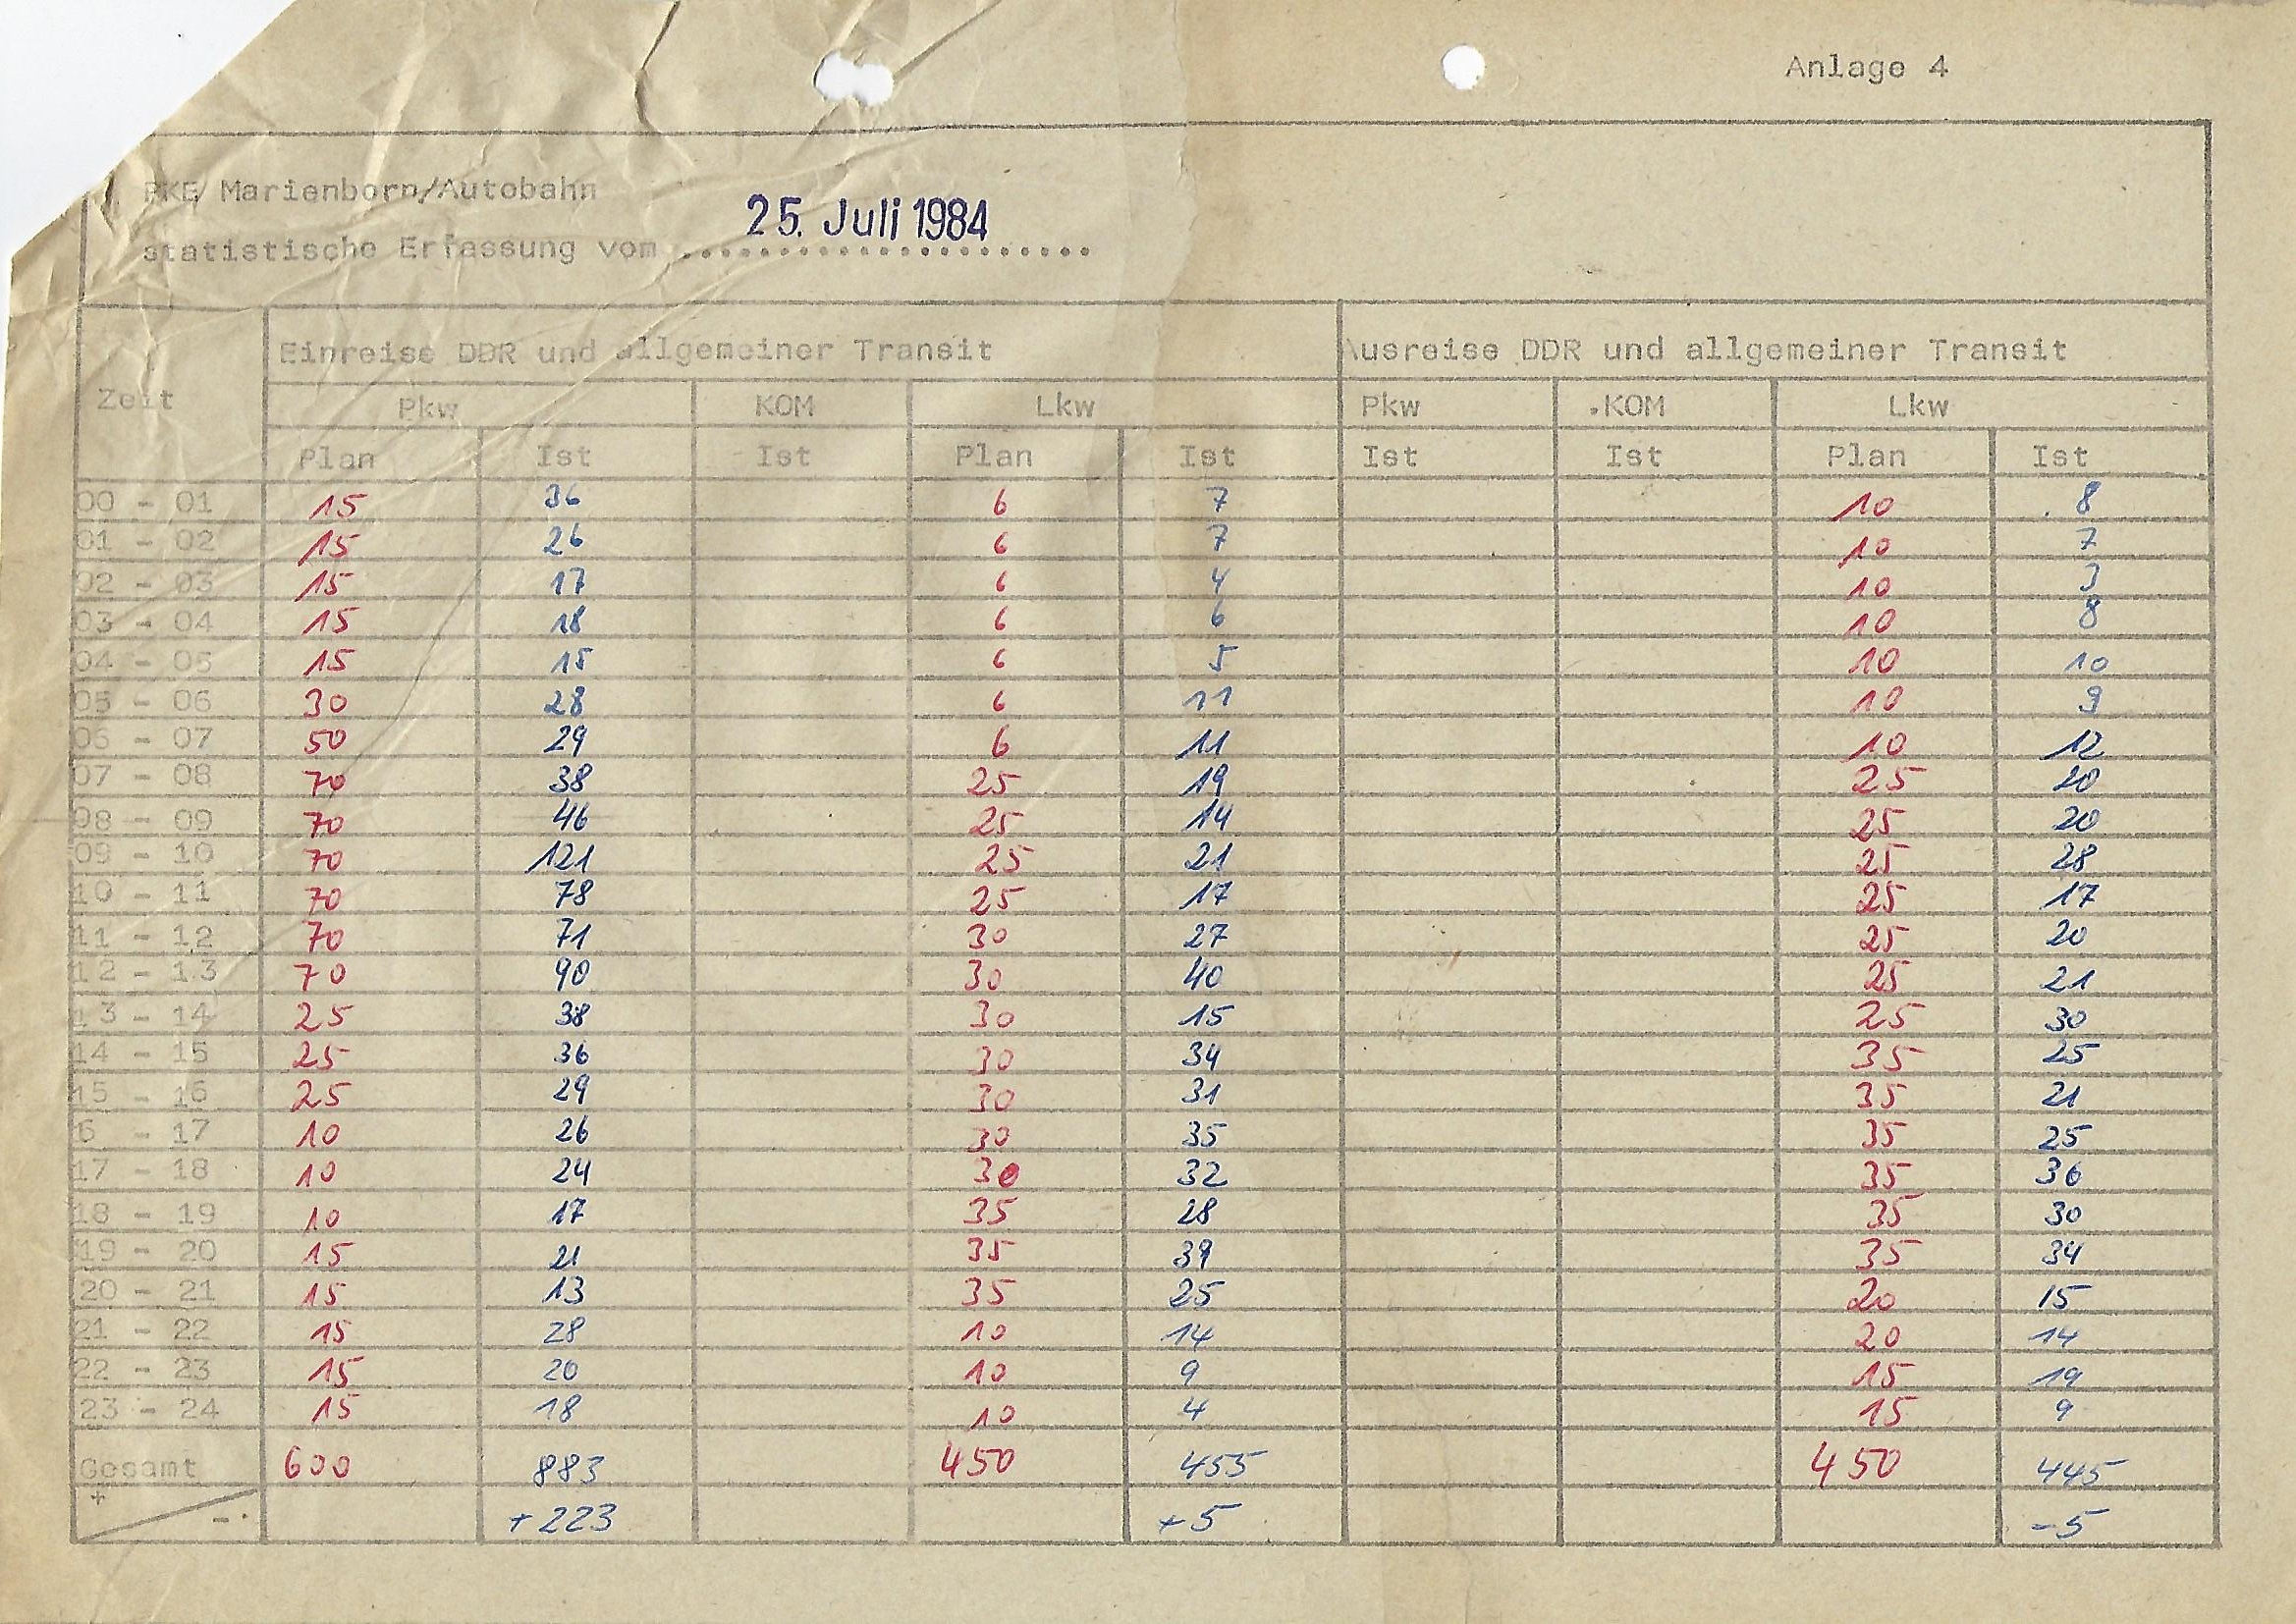 Anlage 4
PKE Marienborn/Autobahn
statistische Erfassung vom ..................... 25. Juli 1984
Zeit Einreise DDR und allgemeiner Transit Ausreise DDR und allgemeiner Transit
Pkw KOM Lkw Pkw .KOM Lkw
Plan Ist Ist Plan Ist Ist Ist Plan Ist
00 - 01 15 36 6 7 10 8
01 - 02 15 26 6 7 10 7
02 - 03 15 17 6 4 10 3
03 - 04 15 18 6 6 10 8
04 - 05 15 15 6 5 10 10
05 - 06 30 28 6 11 10 9
06 - 07 50 29 6 11 10 12
07 - 08 70 38 25 19 25 20
08 - 09 70 46 25 14 25 20
09 - 10 70 121 25 21 25 28
10 - 11 70 78 25 17 25 17
11 - 12 70 71 30 27 25 20
12 - 13 70 90 30 40 25 21
13 - 14 25 38 30 15 25 30
14 - 15 25 36 30 34 35 25
15 - 16 25 29 30 31 35 21
6 - 17 10 26 30 35 35 25
17 - 18 10 24 30 32 35 36
18 - 19 10 17 35 28 35 30
19 - 20 15 21 35 39 35 34
20 - 21 15 13 35 25 20 15
21 - 22 15 28 10 14 20 14
22 - 23 15 20 10 9 15 19
23 - 24 15 18 10 4 15 9
Gesamt 600 883 450 455 450 445
+ - + 223 + 5 - 5